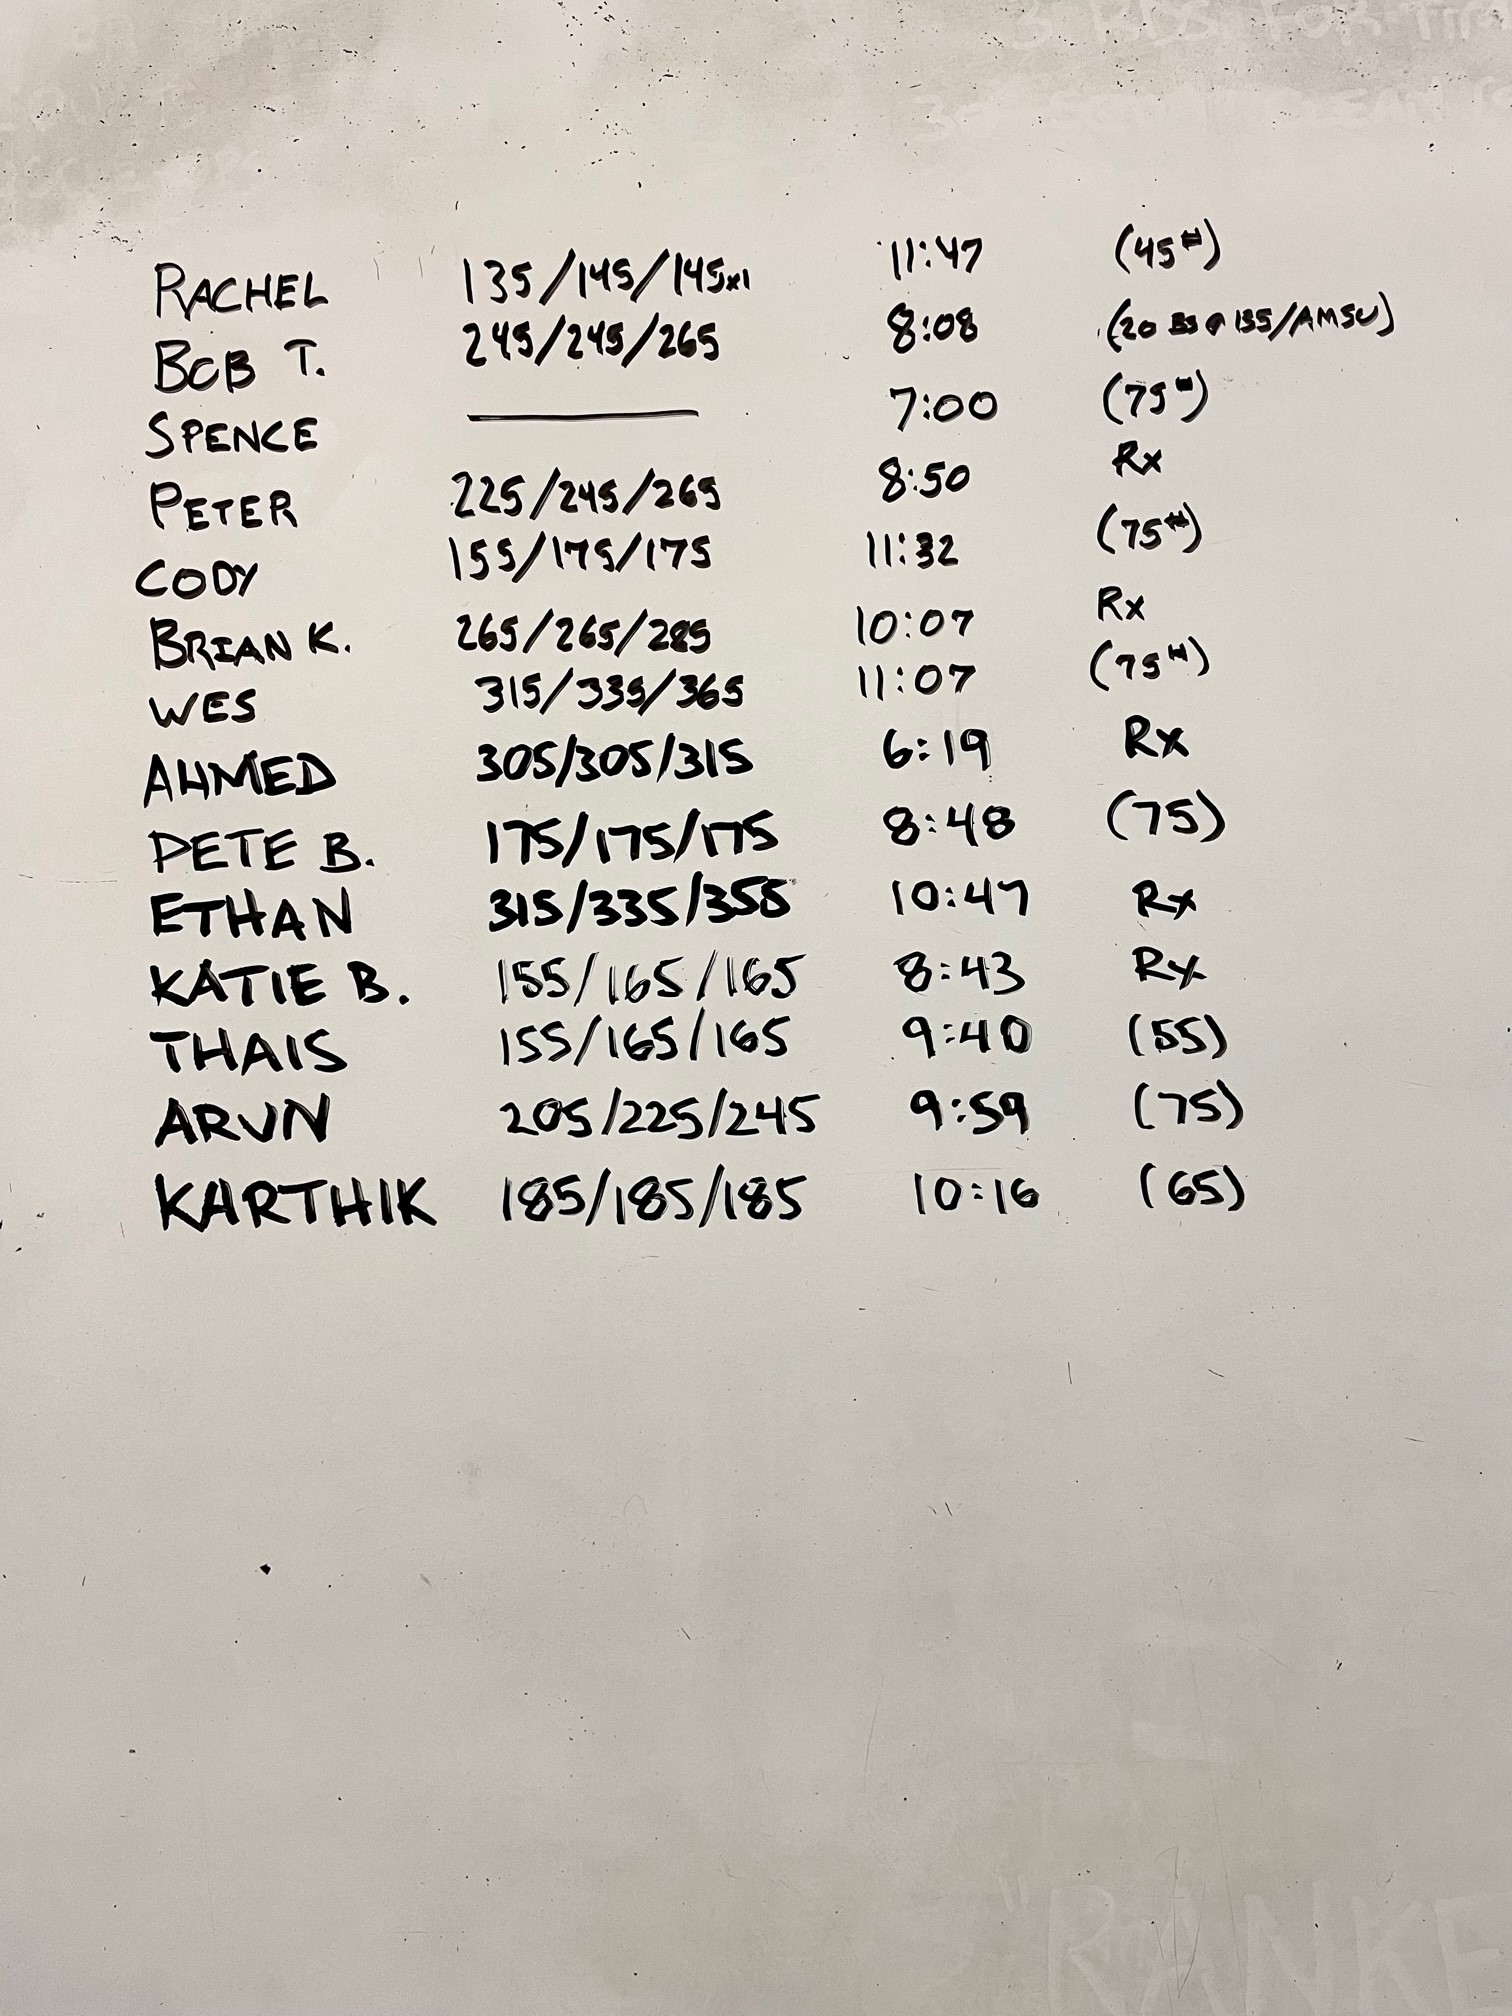 3 RDS. FOR TIM
RACHEL 135/145/145x1 11:47 (45#)
BOB T. 245/245/265 8:08 (20 BS @ 135/AMSU)
SPENCE 7:00 (75#)
PETER 225/245/265 8:50 Rx
CODY 155/175/175 11:32 (75#)
BRIAN K. 265/265/285 10:07 Rx
WES 315/335/365 11:07 (75#)
AHMED 305/305/315 6:19 Rx
PETE B. 175/175/175 8:48 (75)
ETHAN 315/335/355 10:47 Rx
KATIE B. 155/165/165 8:43 Rx
THAIS 155/165/165 9:40 (55)
ARUN 205/225/245 9:59 (75)
KARTHIK 185/185/185 10:16 (65)
"RANKE